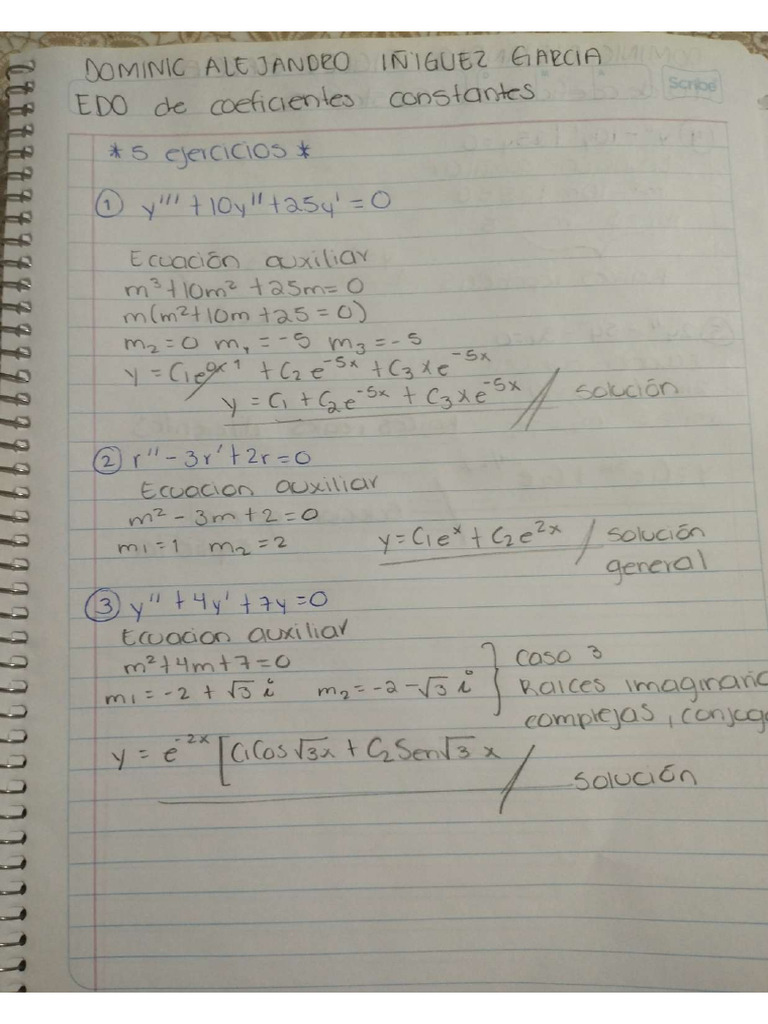 DOMINIC ALEJANDRO IÑIGUEZ GARCIA
EDO de coeficientes constantes
Scribe
* 5 ejercicios *
① y''' + 10y'' + 25y' = 0
Ecuación auxiliar
m³ + 10m² + 25m = 0
m(m² + 10m + 25 = 0)
m₂ = 0 m₁ = -5 m₃ = -5
y = C₁e⁰ˣ 1 + C₂e⁻⁵ˣ + C₃xe⁻⁵ˣ
y = C₁ + C₂e⁻⁵ˣ + C₃xe⁻⁵ˣ // solución
② r'' - 3r' + 2r = 0
Ecuacion auxiliar
m² - 3m + 2 = 0
m₁ = 1 m₂ = 2 y = C₁eˣ + C₂e²ˣ / solución
general
③ y'' + 4y' + 7y = 0
Ecuacion auxiliar
m² + 4m + 7 = 0 } caso 3
m₁ = -2 + √3 i m₂ = -2 - √3 i Raices imaginaria
complejas, conjuga
y = e⁻²ˣ [C₁Cos√3x + C₂Sen√3 x / solución